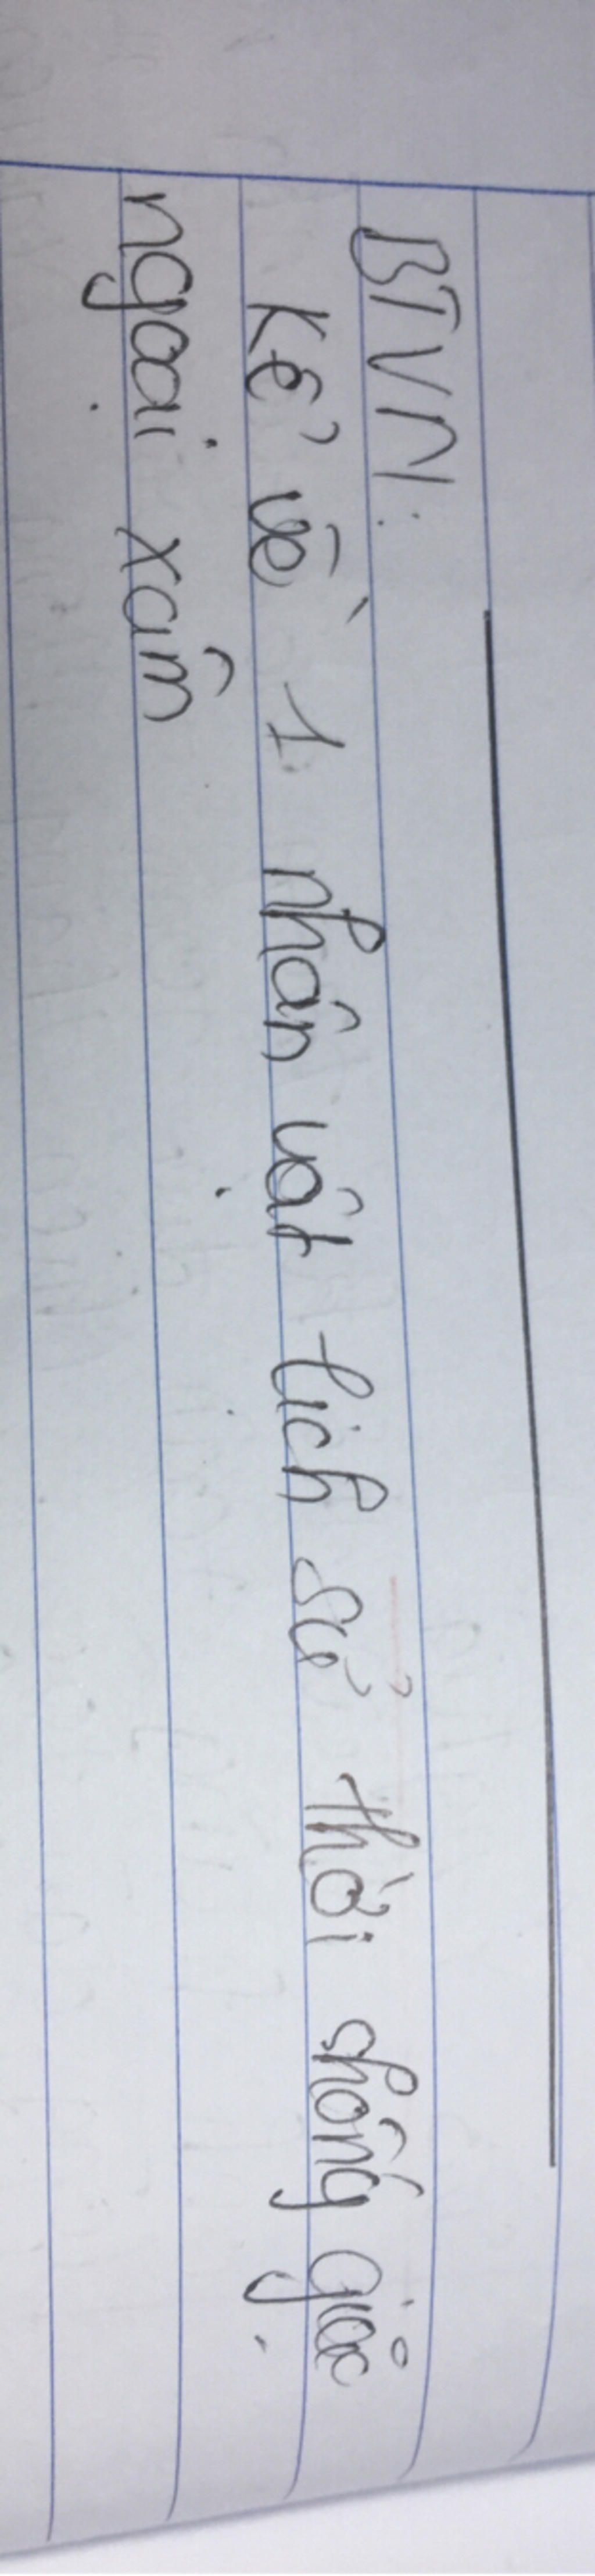 BTVN:
Kể về 1 nhân vật lịch sử thời chống giặc
ngoại xâm